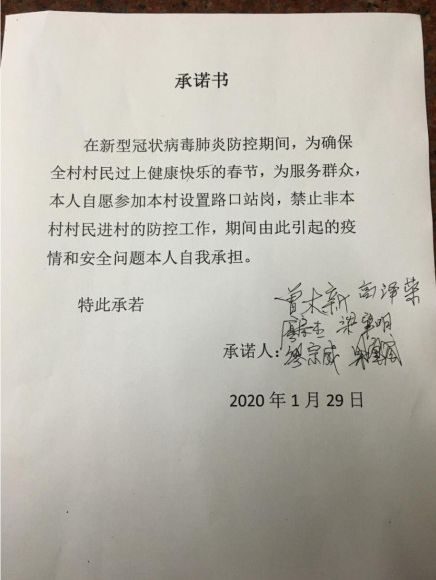 承诺书
在新型冠状病毒肺炎防控期间，为确保
全村村民过上健康快乐的春节，为服务群众，
本人自愿参加本村设置路口站岗，禁止非本
村村民进村的防控工作，期间由此引起的疫
情和安全问题本人自我承担。
特此承若
曾木新 高泽荣
承诺人：
2020 年 1 月 29 日